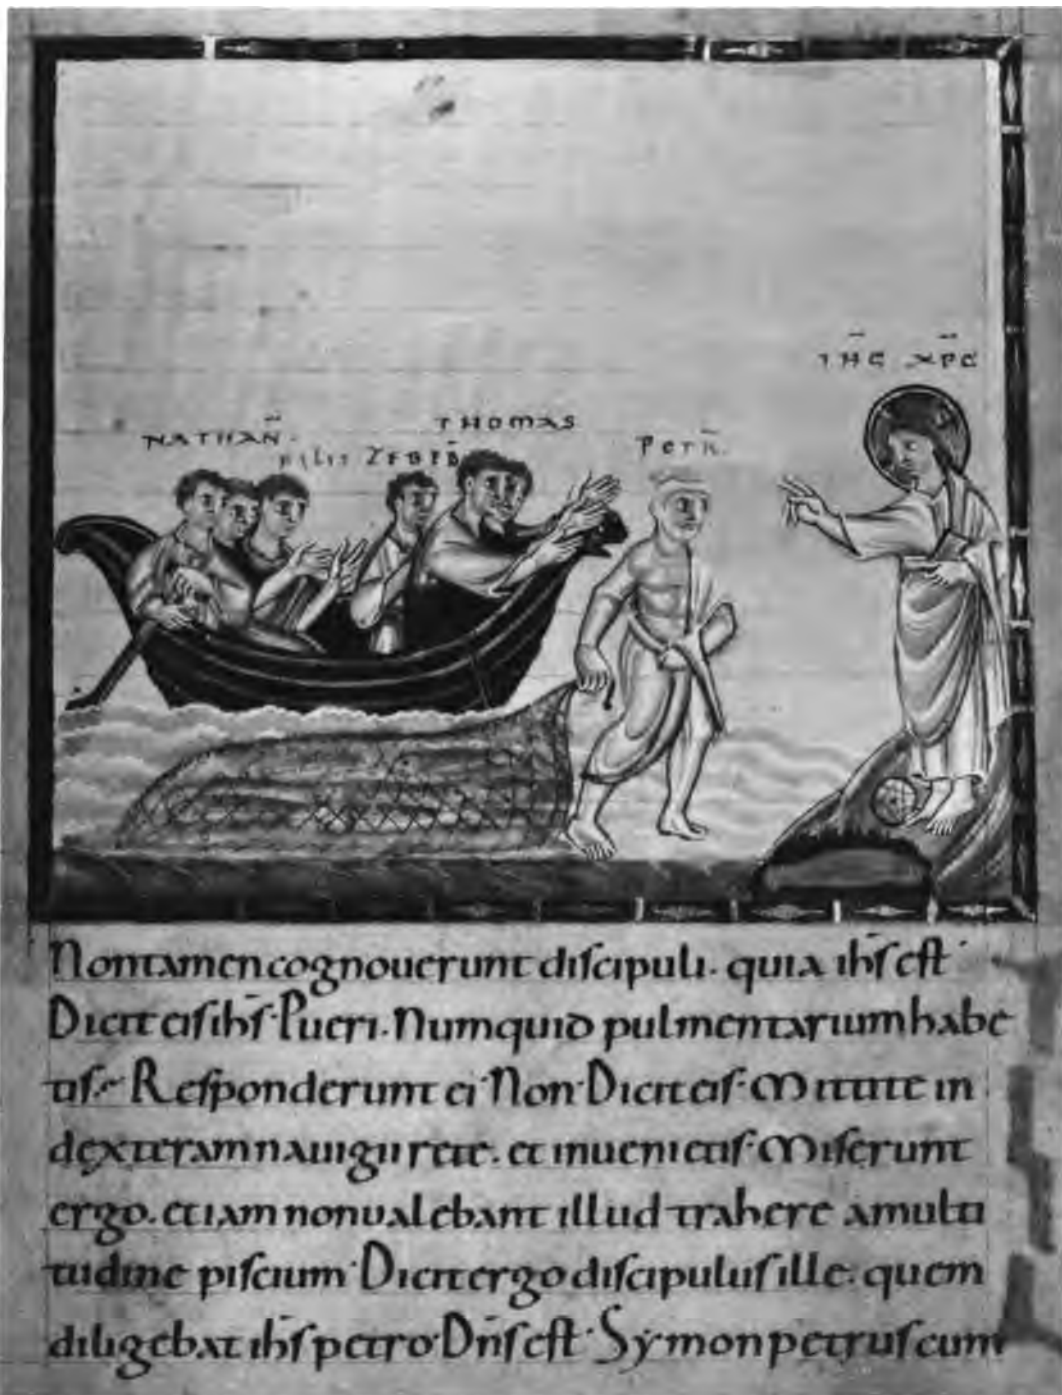 ΙΗC ΧΡC
THOMAS
NATHAN̄.
FILII ZEBED̄
PETR̄.
Non tamen cognouerunt discipuli. quia ih̄s est
Dicit eis ih̄s. Pueri. Numquid pulmentarium habe
tis? Responderunt ei. Non. Dicit eis. Mittite in
dexteram nauigii rete. et inuenietis. Miserunt
ergo. et iam non ualebant illud trahere a multi
tudine piscium. Dicit ergo discipulus ille. quem
diligebat ih̄s petro. Dn̄s est. Symon petrus cum